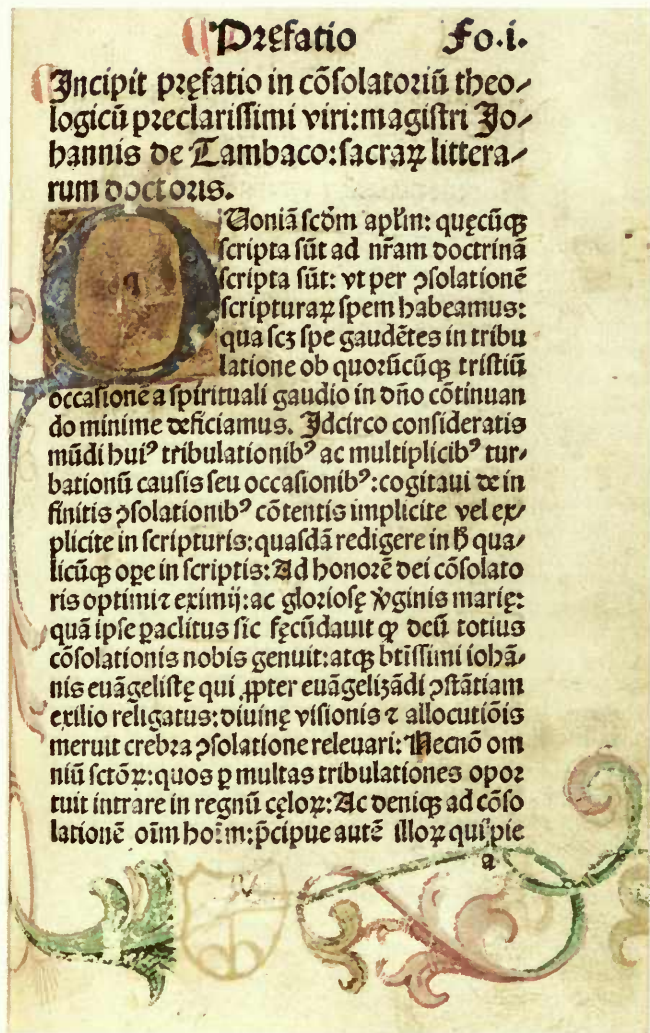 Pręfatio Fo.i.
Incipit pręfatio in cõsolatoriũ theo⸗
logicũ preclarissimi viri:magistri Jo⸗
hannis de Tambaco:sacraꝝ littera⸗
rum doctoris.
QUoniã scḋm apl'm: quęcũqꝫ
scripta sũt ad nr̃am doctrinã
scripta sũt: vt per ꝯsolationẽ
scripturaꝝ spem habeamus:
qua scꝫ spe gaudẽtes in tribu
latione ob quorũcũqꝫ tristiũ
occasionẽ a spirituali gaudio in dño cõtinuan
do minime deficiamus. Idcirco consideratis
mũdi huiꝰ tribulationibꝰ ac multiplicibꝰ tur⸗
bationũ causis seu occasionibꝰ:cogitaui de in
finitis ꝯsolationibꝰ cõtentis implicite vel ex⸗
plicite in scripturis:quasdã redigere in h̃ qua⸗
licũqꝫ oꝑe in scriptis:Ad honorẽ dei cõsolato
ris optimi ⁊ eximij:ac gloriosę v̾ginis marię:
quã ipse ꝑaclitus sic fęcũdauit ꝙ deũ totius
cõsolationis nobis genuit:atqꝫ btĩssimi iohã⸗
nis euãgelistę qui ꝓpter euãgelizãdi ꝯstãtiam
exilio religatus:diuinę visionis ⁊ allocutiõis
meruit crebra ꝯsolatione releuari:Necnõ om
niũ sctõꝝ:quos ꝑ multas tribulationes opor
tuit intrare in regnũ cęloꝝ:Ac deniqꝫ ad cõso
lationẽ oĩm hoĩm:p̃cipue autẽ illoꝝ qui pie
a